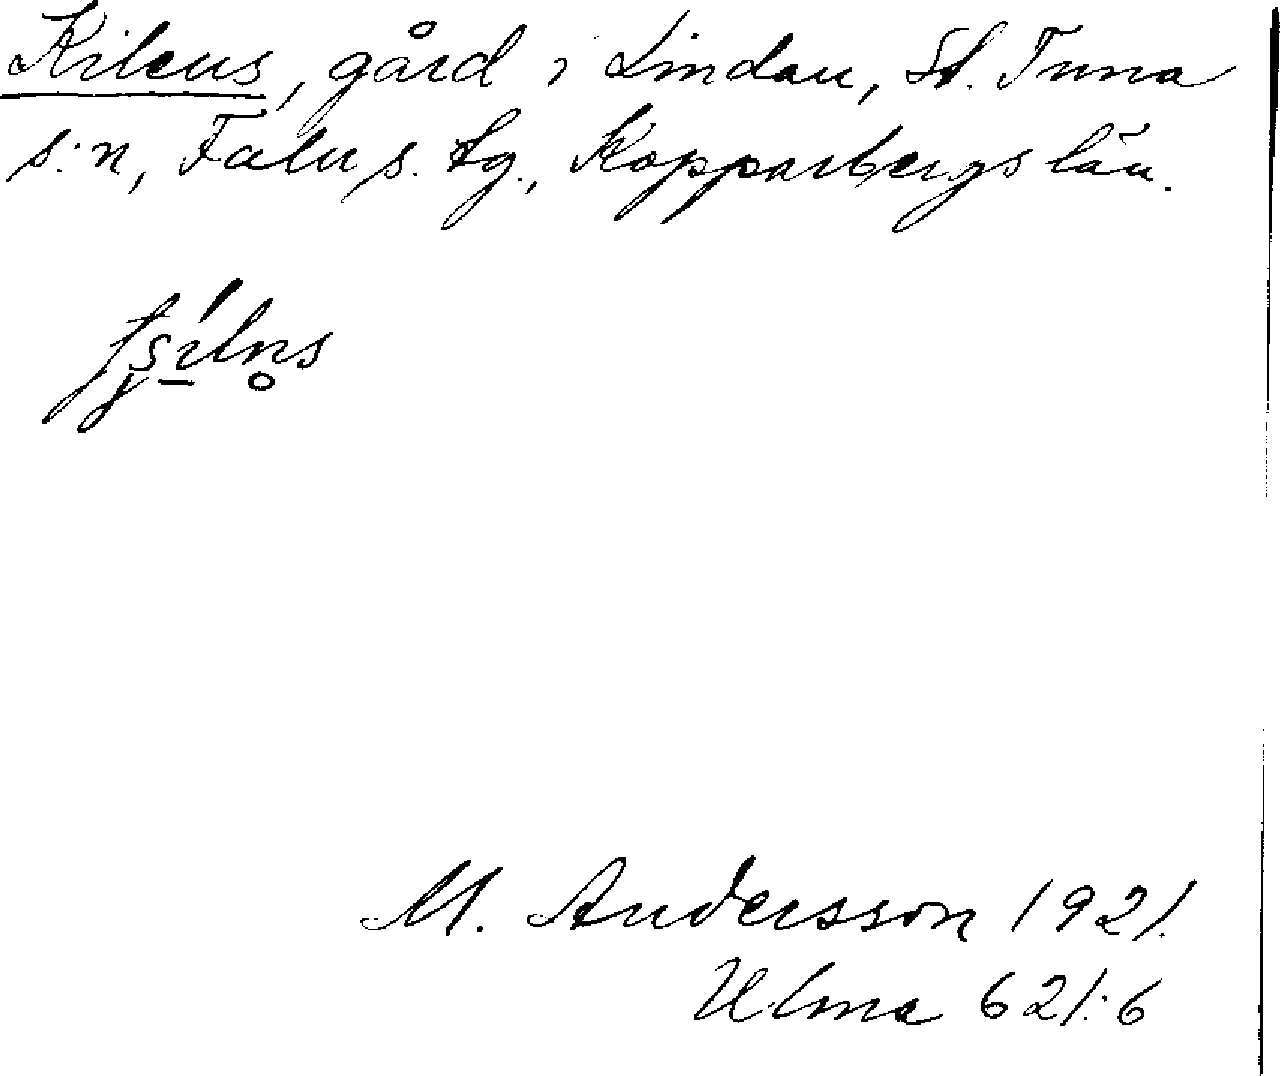 Kilens, gård i Lindan, St. Tuna
s:n, Falu s. tg., Kopparbergs län.
M. Andersson 1921.
Ulma 621:6